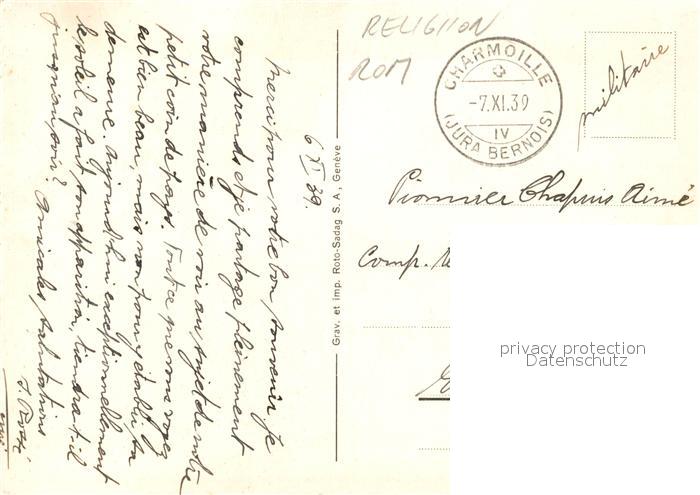 RELIGIION
ROM
CHARMOILLE
-7.XI.39
IV
(JURA BERNOIS)
militaire
Pionnier Chapuis Aimé
Comp.
privacy protection
Datenschutz
Grav. et imp. Roto-Sadag S. A., Genève
6 XI 39.
Merci pour votre bon souvenir je
comprends et je partage pleinement
votre manière de voir au sujet de notre
petit coin de pays. Tout ce que vous voyez
est bien beau, mais non pour y établir sa
demeure. Aujourd'hui exceptionnellement
le soleil a fait son apparition, tiendra-t-il
jusqu'au soir? Amicales salutations